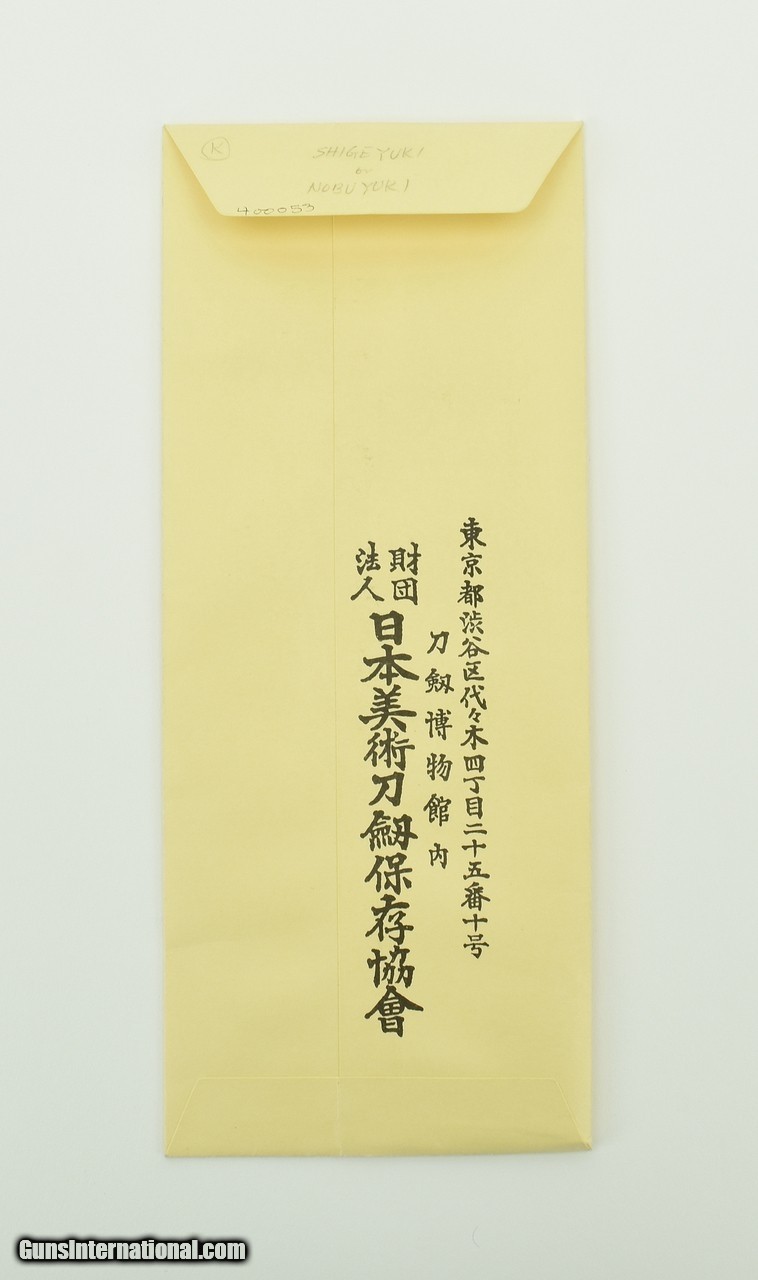 K
SHIGEYUKI
or
NOBUYUKI
400053
東京都渋谷区代々木四丁目二十五番十号
刀劔博物館内
財団
法人
日本美術刀劔保存協會
GunsInternational.com